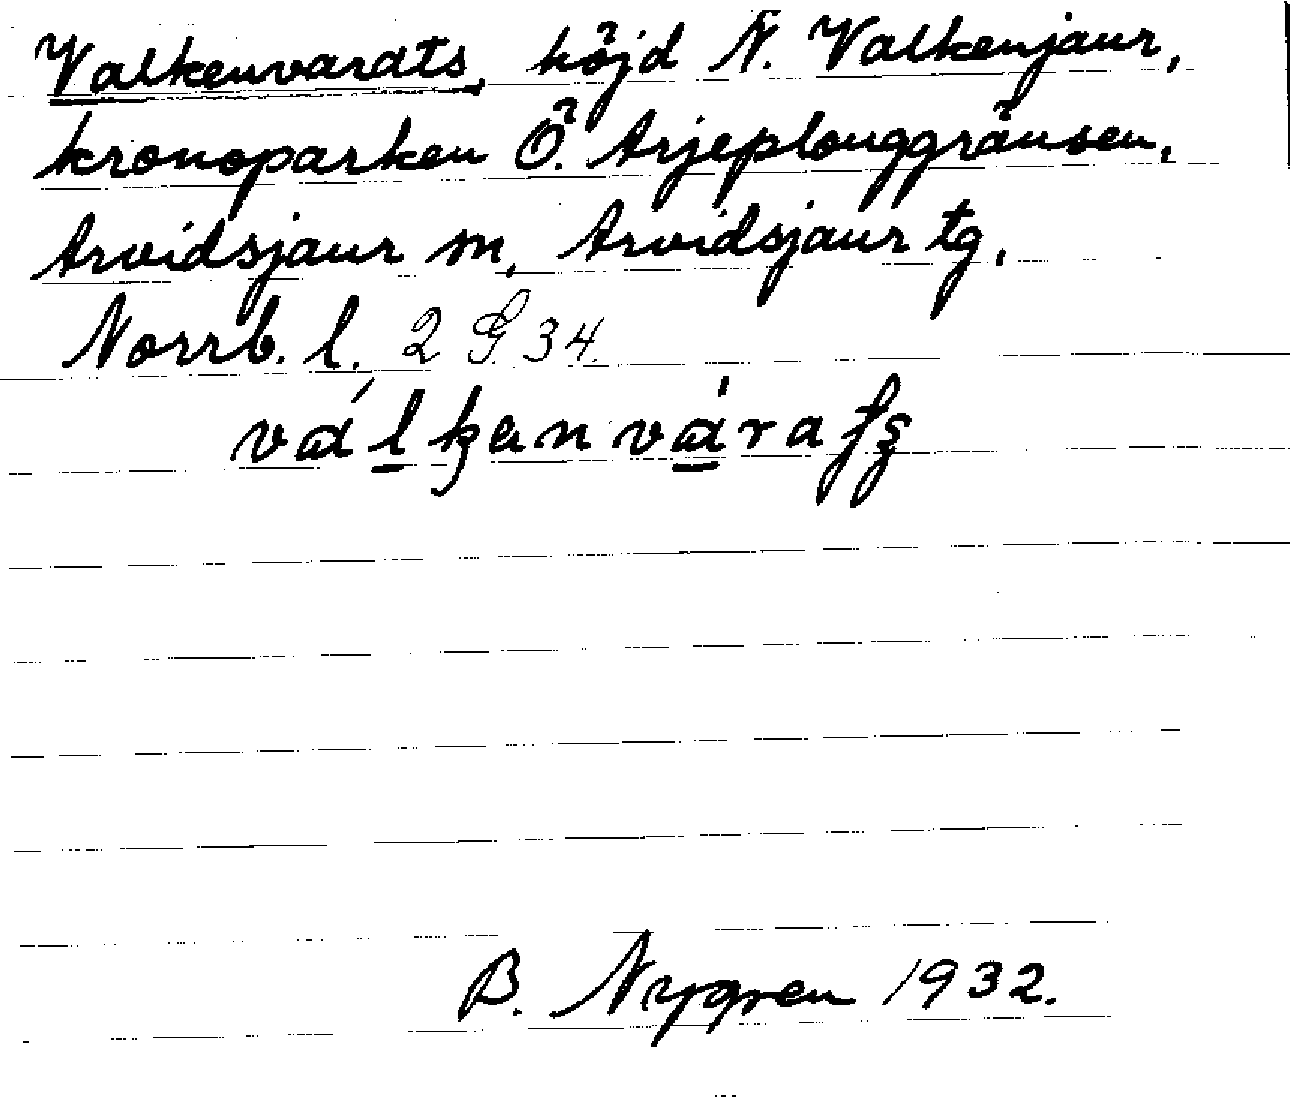 Valkenvardts, höjd N. Valkenjaur,
kronoparken Ö. Arjeplouggränsen,
Arvidsjaur sn, Arvidsjaur tg,
Norrb. l. 2 G 34.
B. Nygren 1932.